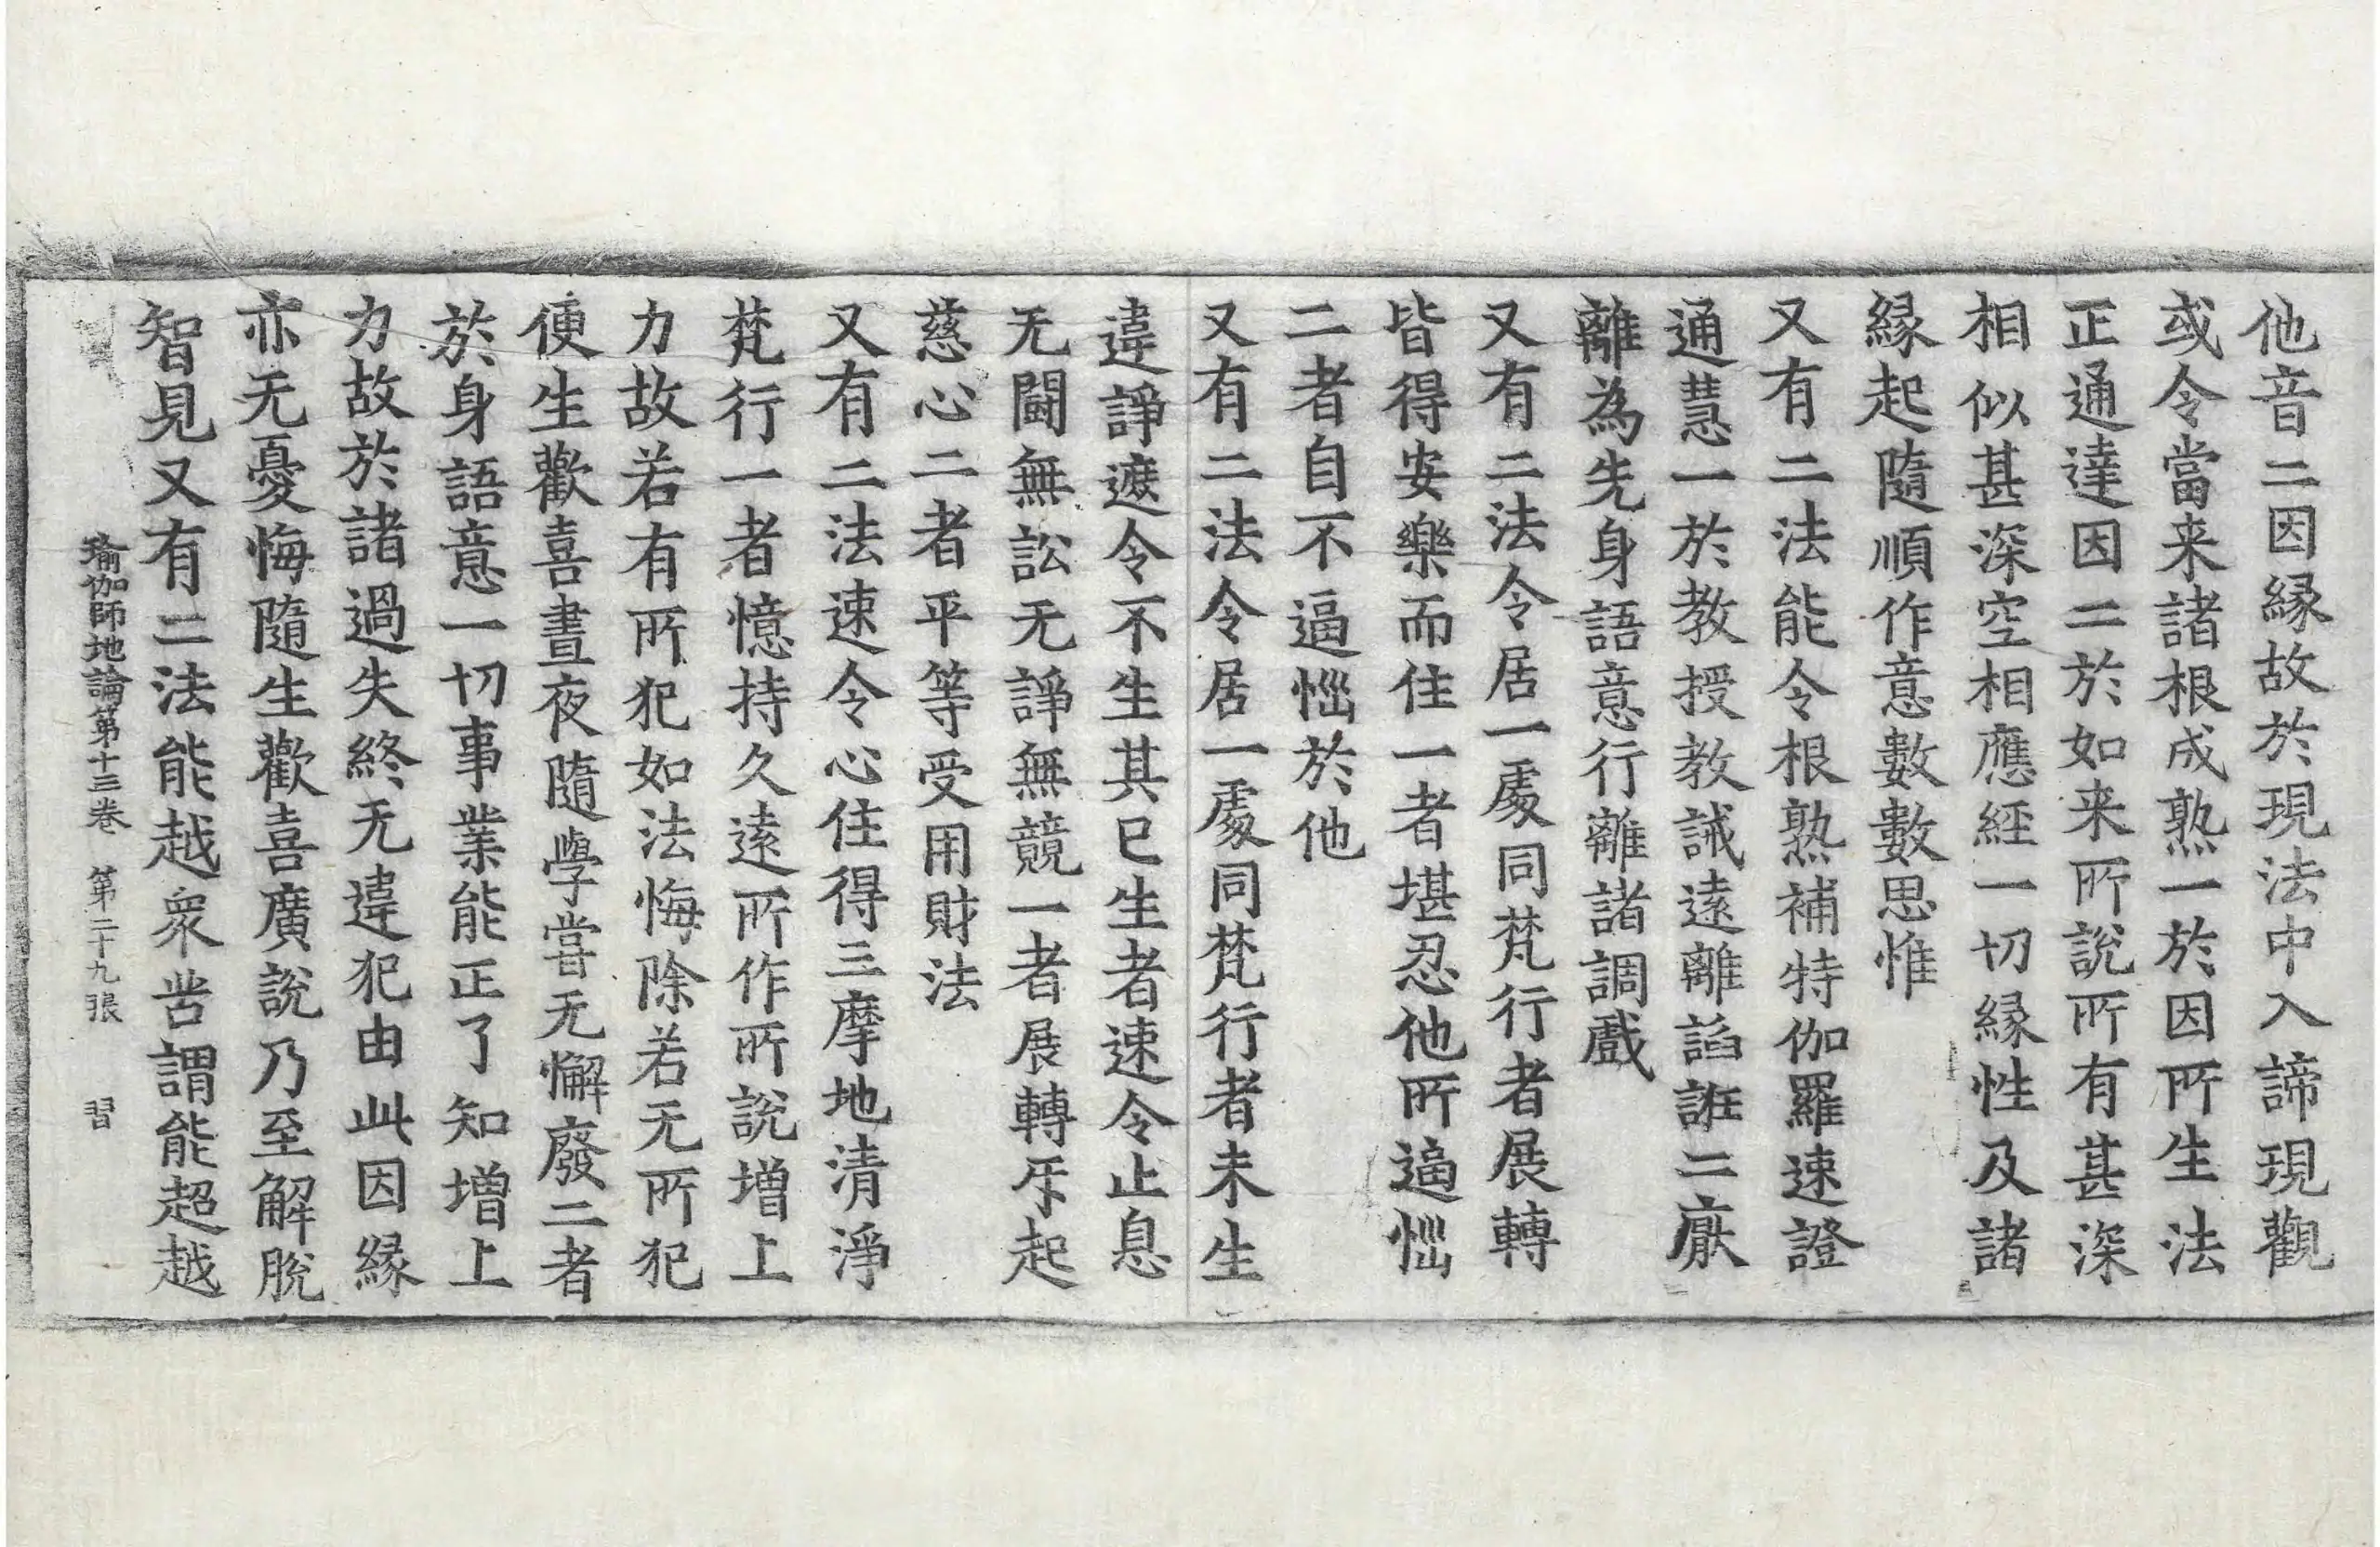 他音二因縁故於現法中入諦現觀
或令當来諸根成熟一於因所生法
正通達因二於如来所說所有甚深
相似甚深空相應經一切縁性及諸
縁起隨順作意數數思惟
又有二法能令根熟補特伽羅速證
通慧一於教授教誡遠離諂誑二猒
離為先身語意行離諸調戲
又有二法令居一處同梵行者展轉
皆得安樂而住一者堪忍他所逼惱
二者自不逼惱於他
又有二法令居一處同梵行者未生
違諍遮令不生其已生者速令止息
无鬪無訟无諍無競一者展轉互起
慈心二者平等受用財法
又有二法速令心住得三摩地清淨
梵行一者憶持久遠所作所說增上
力故若有所犯如法悔除若无所犯
便生歡喜晝夜隨學甞无懈廢二者
於身語意一切事業能正了知增上
力故於諸過失終无違犯由此因縁
亦无憂悔隨生歡喜廣說乃至解脫
智見又有二法能越衆苦謂能超越
瑜伽師地論第十三卷 第二十九張 習